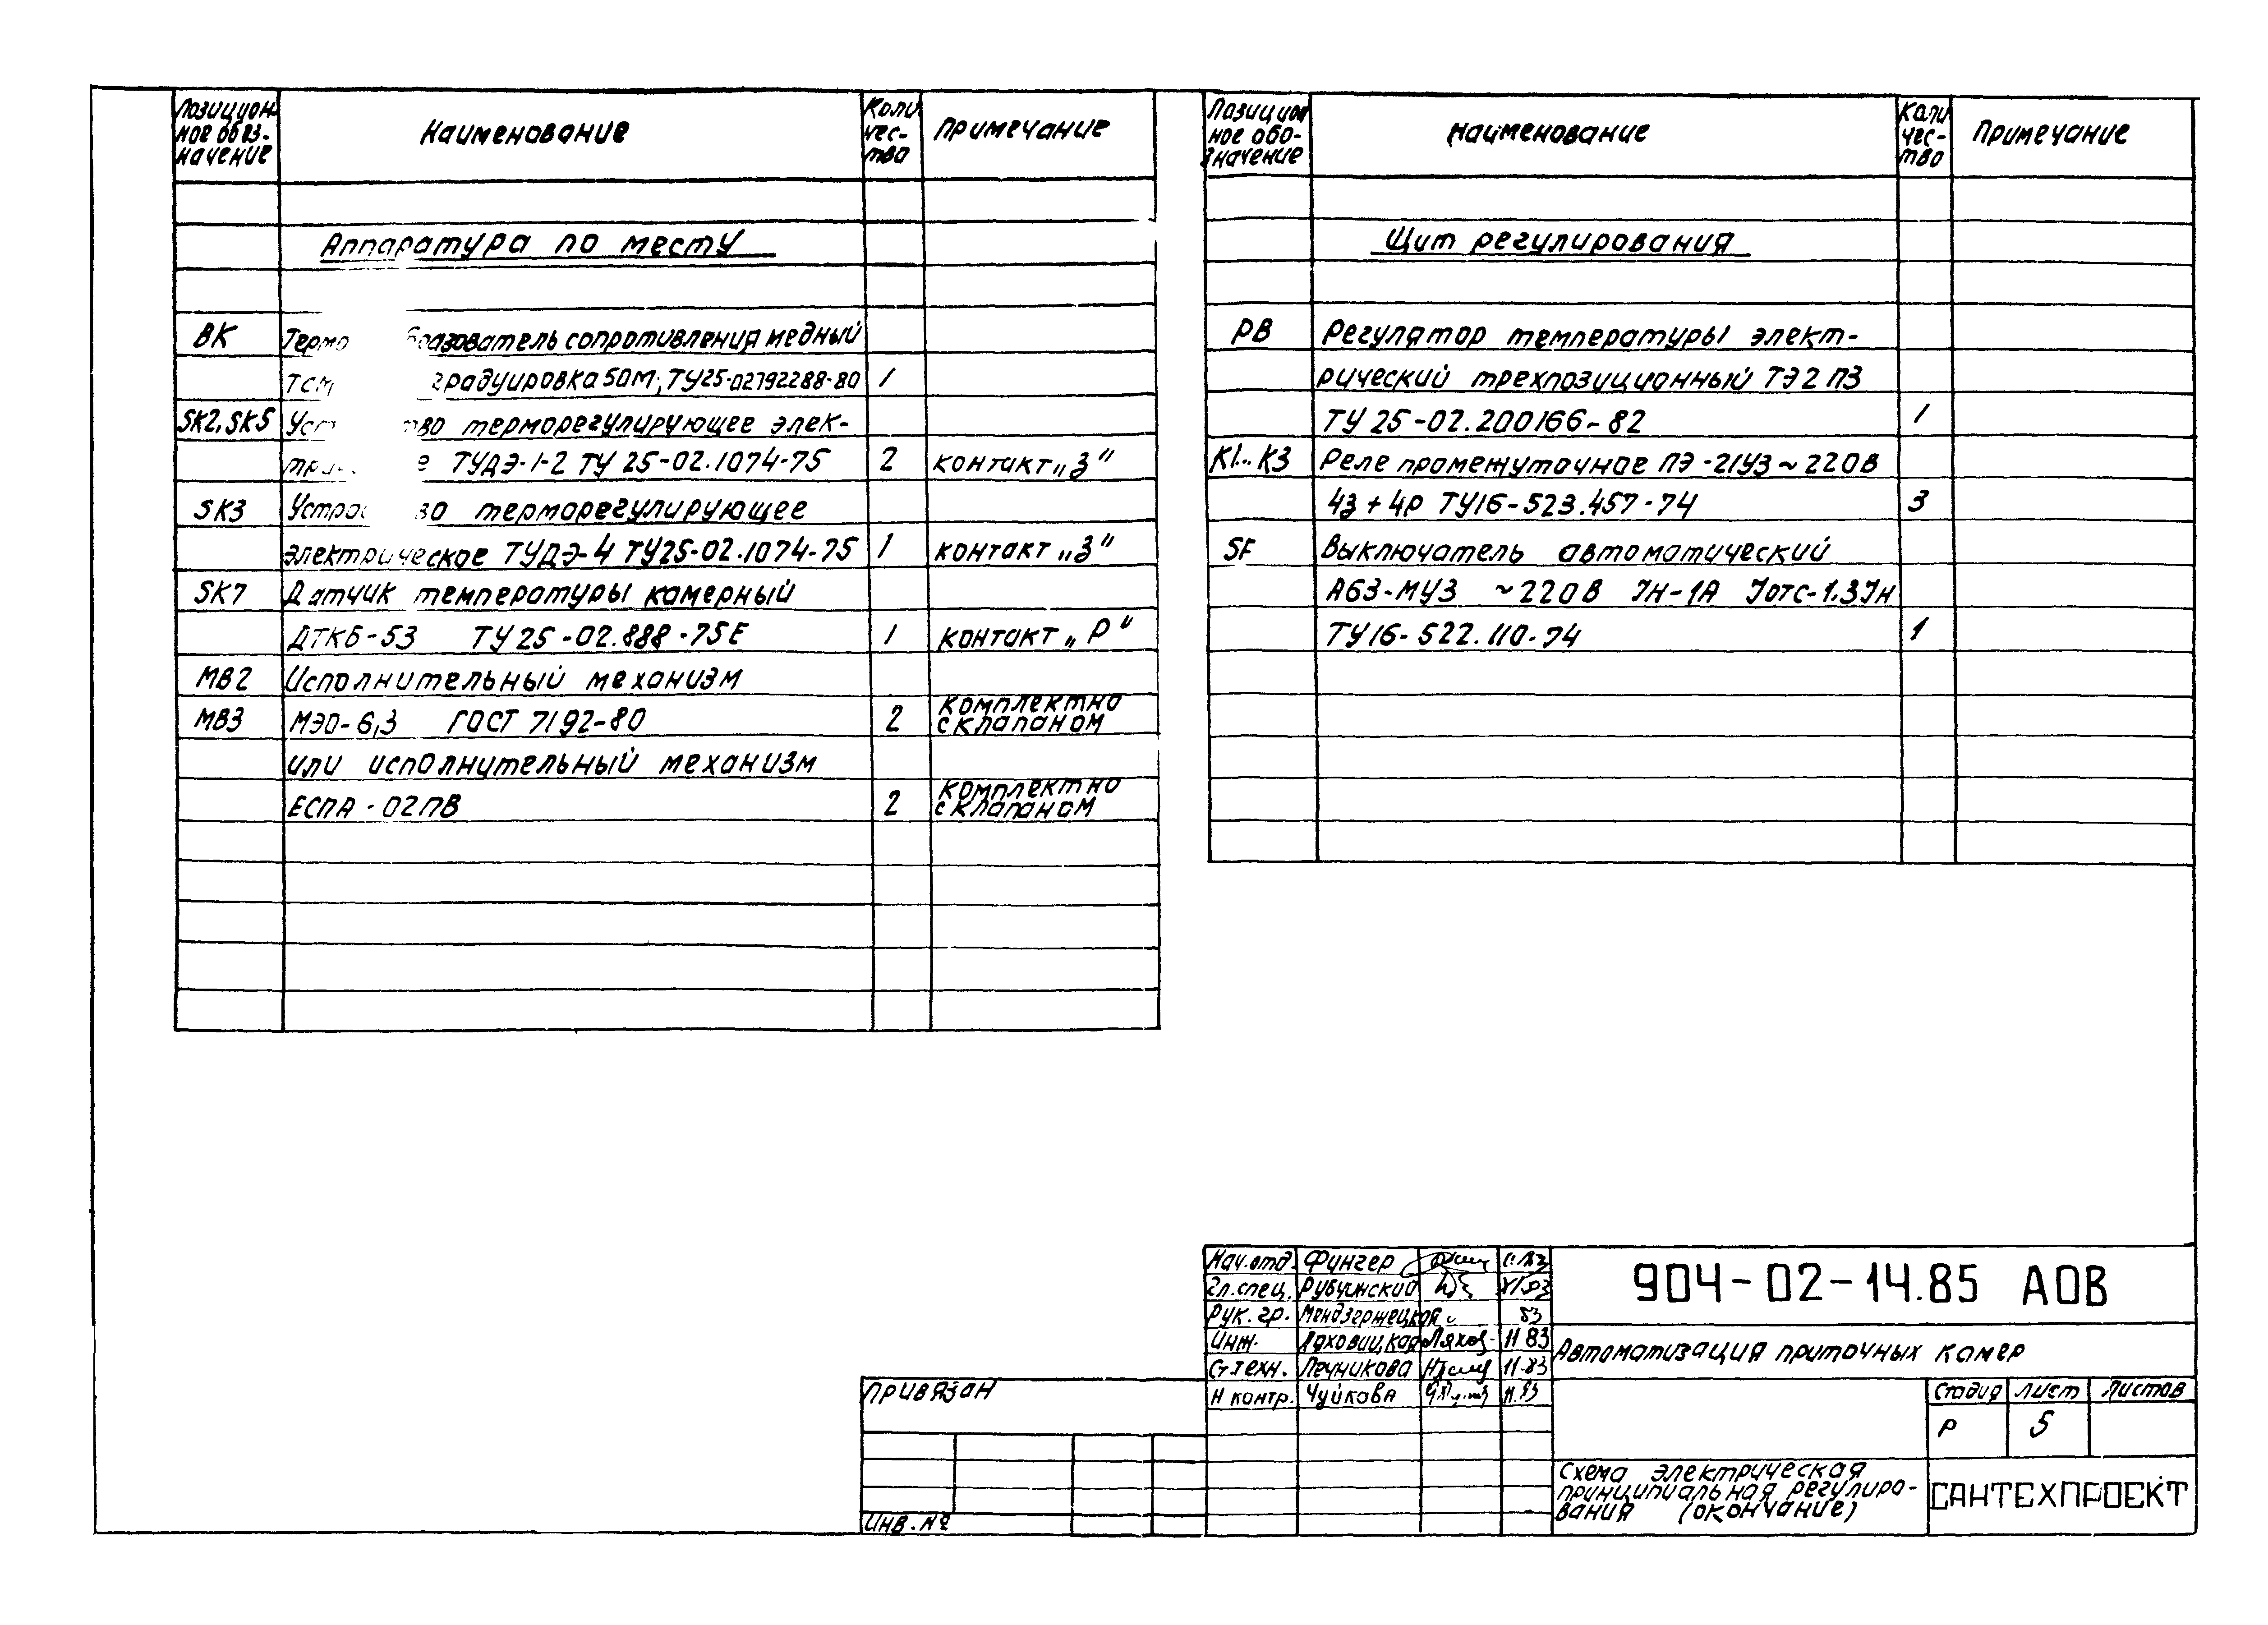 Позицион-
ное обоз-
начение
Наименование
Коли
чес-
тво
Примечание
Аппаратура по месту
ВК Термо бразователь сопротивления медный
ТСМ градуировка 50М; ТУ25-02792288-80 1
SK2, SK5 Уст тво терморегулирующее элек-
три е ТУДЭ-1-2 ТУ 25-02.1074-75 2 контакт „З"
SK3 Устро во терморегулирующее
электрическое ТУДЭ-4 ТУ25-02.1074-75 1 контакт „З"
SK7 Датчик температуры камерный
ДТКБ-53 ТУ 25-02.888-75Е 1 контакт „Р"
МВ2 Исполнительный механизм
МВ3 МЭО-6,3 ГОСТ 7192-80 2 комплектно
с клапаном
или исполнительный механизм
ЕСПА-02ПВ 2 комплектно
с клапаном
Позицион
ное обо-
значение
Наименование
Коли
чес-
тво
Примечание
Щит регулирования
РВ Регулятор температуры элект-
рический трехпозиционный ТЭ2 П3
ТУ 25-02.200166-82 1
К1...К3 Реле промежуточное ПЭ-21У3 ~220В
4з + 4р ТУ16-523.457-74 3
SF Выключатель автоматический
А63-МУЗ ~220В Iн-1А Iотс-1.3Iн
ТУ16-522.110-74 1
Нач.отд. Фингер
Гл.спец. Рубчинский
Рук. гр. Мендзержецкая 83
Инж. Ляховицкая Ляхов- 11 83
Ст.техн. Печникова 11-83
Н контр. Чуйкова 11.83
904-02-14.85 АОВ
Автоматизация приточных камер
Стадия Лист Листов
Р 5
Схема электрическая
принципиальная регулиро-
вания (окончание)
САНТЕХПРОЕКТ
Привязан
Инв. №